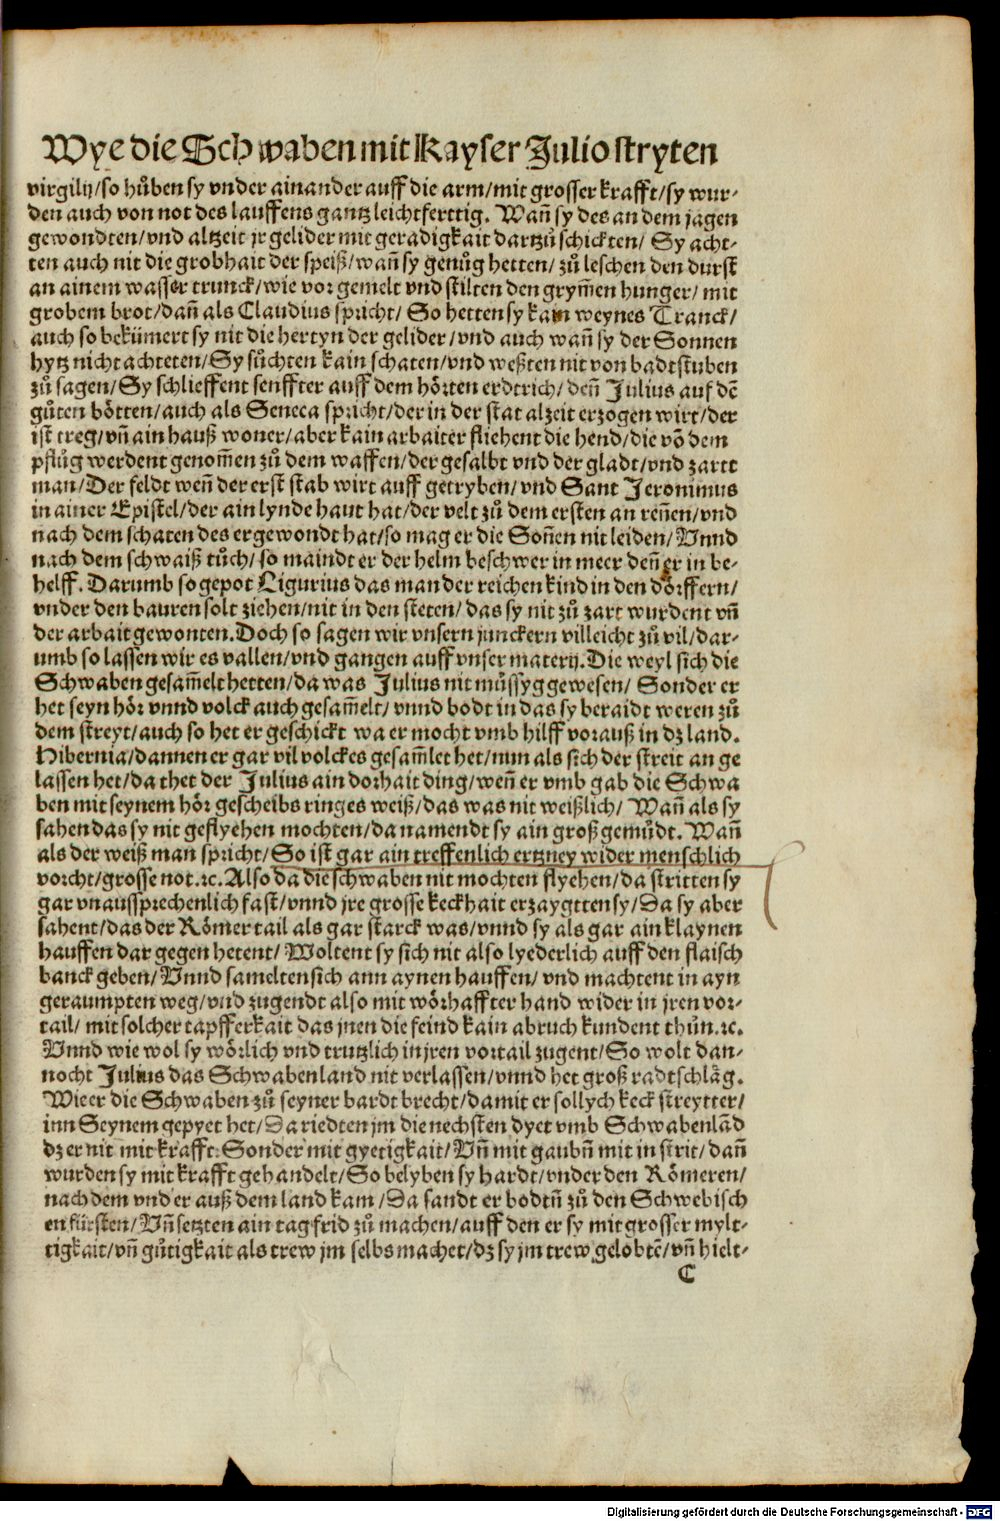 Wye die Schwaben mit Kayser Julio stryten
virgilij/so hůben sy vnder ainander auff die arm/mit grosser krafft/sy wur-
den auch von not des lauffens gantz leichtferttig. Wañ sy des an dem jagen
gewondten/vnd altzeit jr gelider mit geradigkait dartzů schickten/ Sy ach-
ten auch nit die grobhait der speiß/wañ sy genůg hetten/zů leschen den durst
an ainem wasser trunck/wie vor gemelt vnd stilten den grym̃en hunger/ mit
grobem brot/dañ als Claudius spricht/ So hetten sy kain weynes Tranck/
auch so bekümert sy nit die hertyn der gelider/vnd auch wañ sy der Sonnen
hytz nicht achteten/Sy sůchten kain schaten/vnd weßten nit von badtstuben
zů sagen/Sy schlieffent senffter auff dem hörten erdtrich/deñ Julius auf dẽ
gůten bötten/auch als Seneca spricht/der in der stat alzeit erzogen wirt/der
ist treg/vñ ain hauß woner/aber kain arbaiter fliehent die hend/die võ dem
pflůg werdent genom̃en zů dem waffen/der gesalbt vnd der gladt/vnd zartt
man/Der feldt weñ der erst stab wirt auff getryben/vnd Sant Jeronimus
in ainer Epistel/der ain lynde haut hat/der velt zů dem ersten an reñen/vnd
nach dem schaten des er gewondt hat/so mag er die Soñen nit leiden/Vnnd
nach dem schwaiß tůch/so maindt er der helm beschwer in meer deñ er in be-
helff. Darumb so gepot Ligurius das man der reichen kind in den dörffern/
vnder den bauren solt ziehen/nit in den steten/das sy nit zů zart wurdent vñ
der arbait gewonten. Doch so sagen wir vnsern junckern villeicht zů vil/dar-
umb so lassen wir es vallen/vnd gangen auff vnser materij. Die weyl sich die
Schwaben gesam̃elt hetten/da was Julius nit můssyg gewesen/ Sonder er
het seyn hör vnnd volck auch gesam̃elt/ vnnd bodt in das sy beraidt weren zů
dem streyt/auch so het er geschickt wa er mocht vmb hilff vorauß in dz land.
Hibernia/dannen er gar vil volckes gesam̃let het/nun als sich der streit an ge
lassen het/da thet der Julius ain dorhait ding/weñ er vmb gab die Schwa
ben mit seynem hör gescheibs ringes weiß/das was nit weißlich/ Wañ als sy
sahen das sy nit geflyehen mochten/da namendt sy ain groß gemůdt. Wañ
als der weiß man spricht/So ist gar ain treffenlich ertzney wider menschlich
vorcht/grosse not.ꝛc. Also da die schwaben nit mochten flyehen/da stritten sy
gar vnaussprechenlich fast/vnnd jre grosse keckhait erzaygtten sy/Da sy aber
sahent/das der Römer tail als gar starck was/vnnd sy als gar ain klaynen
hauffen dar gegen hetent/ Woltent sy sich nit also lyederlich auff den flaisch
banck geben/Vnnd sameltensich ann aynen hauffen/ vnd machtent in ayn
geraumpten weg/vnd zugendt also mit wörhaffter hand wider in jren vor-
tail/ mit solcher tapfferkait das jnen die feind kain abruch kundent thůn.ꝛc.
Vnnd wie wol sy wörlich vnd trutzlich in jren vortail zugent/So wolt dan-
nocht Julius das Schwabenland nit verlassen/vnnd het groß radtschläg.
Wie er die Schwaben zů seyner hardt brecht/damit er sollych keck streytter/
inn Seynem gepyet het/Da riedten jm die nechsten dyet vmb Schwabenlãd
dz er nit mit krafft. Sonder mit gyetigkait/Vñ mit gaubñ mit in strit/dañ
wurden sy mit krafft gehandelt/So belyben sy hardt/vnder den Römeren/
nach dem vnd er auß dem land kam/Da sandt er bodtñ zů den Schwebisch
en fürsten/Vñ setzten ain tag frid zů machen/auff den er sy mit grosser mylt-
tigkait/vñ gůtigkait als trew jm selbs machet/dz sy jm trew gelobtẽ/vñ hielt-
C
Digitalisierung gefördert durch die Deutsche Forschungsgemeinschaft - DFG